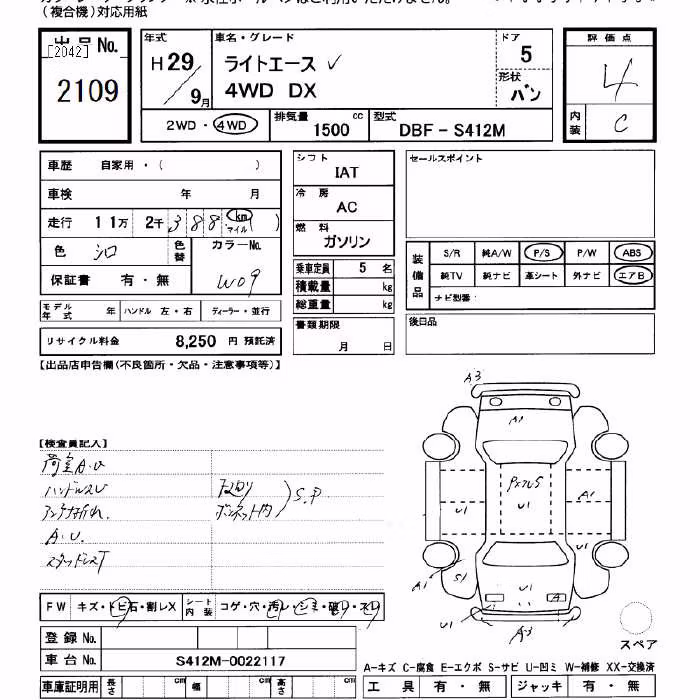 (複合機)対応用紙
出品No.
[2042]
2109
年式
H29/9月
車名・グレード
ライトエース
4WD DX
ドア
5
形状
バン
2WD・4WD
排気量
1500 cc
型式
DBF-S412M
評価点
4
内装
C
車歴 自家用・( )
車検 年 月
走行 11万 2千 388 km マイル ( )
色 シロ 色替 カラーNo. W09
保証書 有・無
モデル年式 年 ハンドル 左・右 ディーラー・並行
リサイクル料金 8,250 円 預託済
シフト
IAT
冷房
AC
燃料
ガソリン
乗車定員 5 名
積載量 kg
総重量 kg
書類期限
月 日
セールスポイント
装備品
S/R 純A/W P/S P/W ABS
純TV 純ナビ 革シート 外ナビ エアB
ナビ型番:
後日品
【出品店申告欄(不良箇所・欠品・注意事項等)】
【検査員記入】
荷室A.U
ハンドルスU
アンテナ折れ
ボンネット内
S.P
A.U.
スタッドレスT
A3
A1
U1
U1
A1
U1
A1
S1
U1
A
U1
A3
スペア
FW キズ・トビ石・割レX シート内装 コゲ・穴・汚レ・シミ・破レ・スレ
登録No.
車台No. S412M-0022117
車庫証明用 長さ cm 幅 cm 高さ cm
A-キズ C-腐食 E-エクボ S-サビ U-凹ミ W-補修 XX-交換済
工具 有・無 ジャッキ 有・無